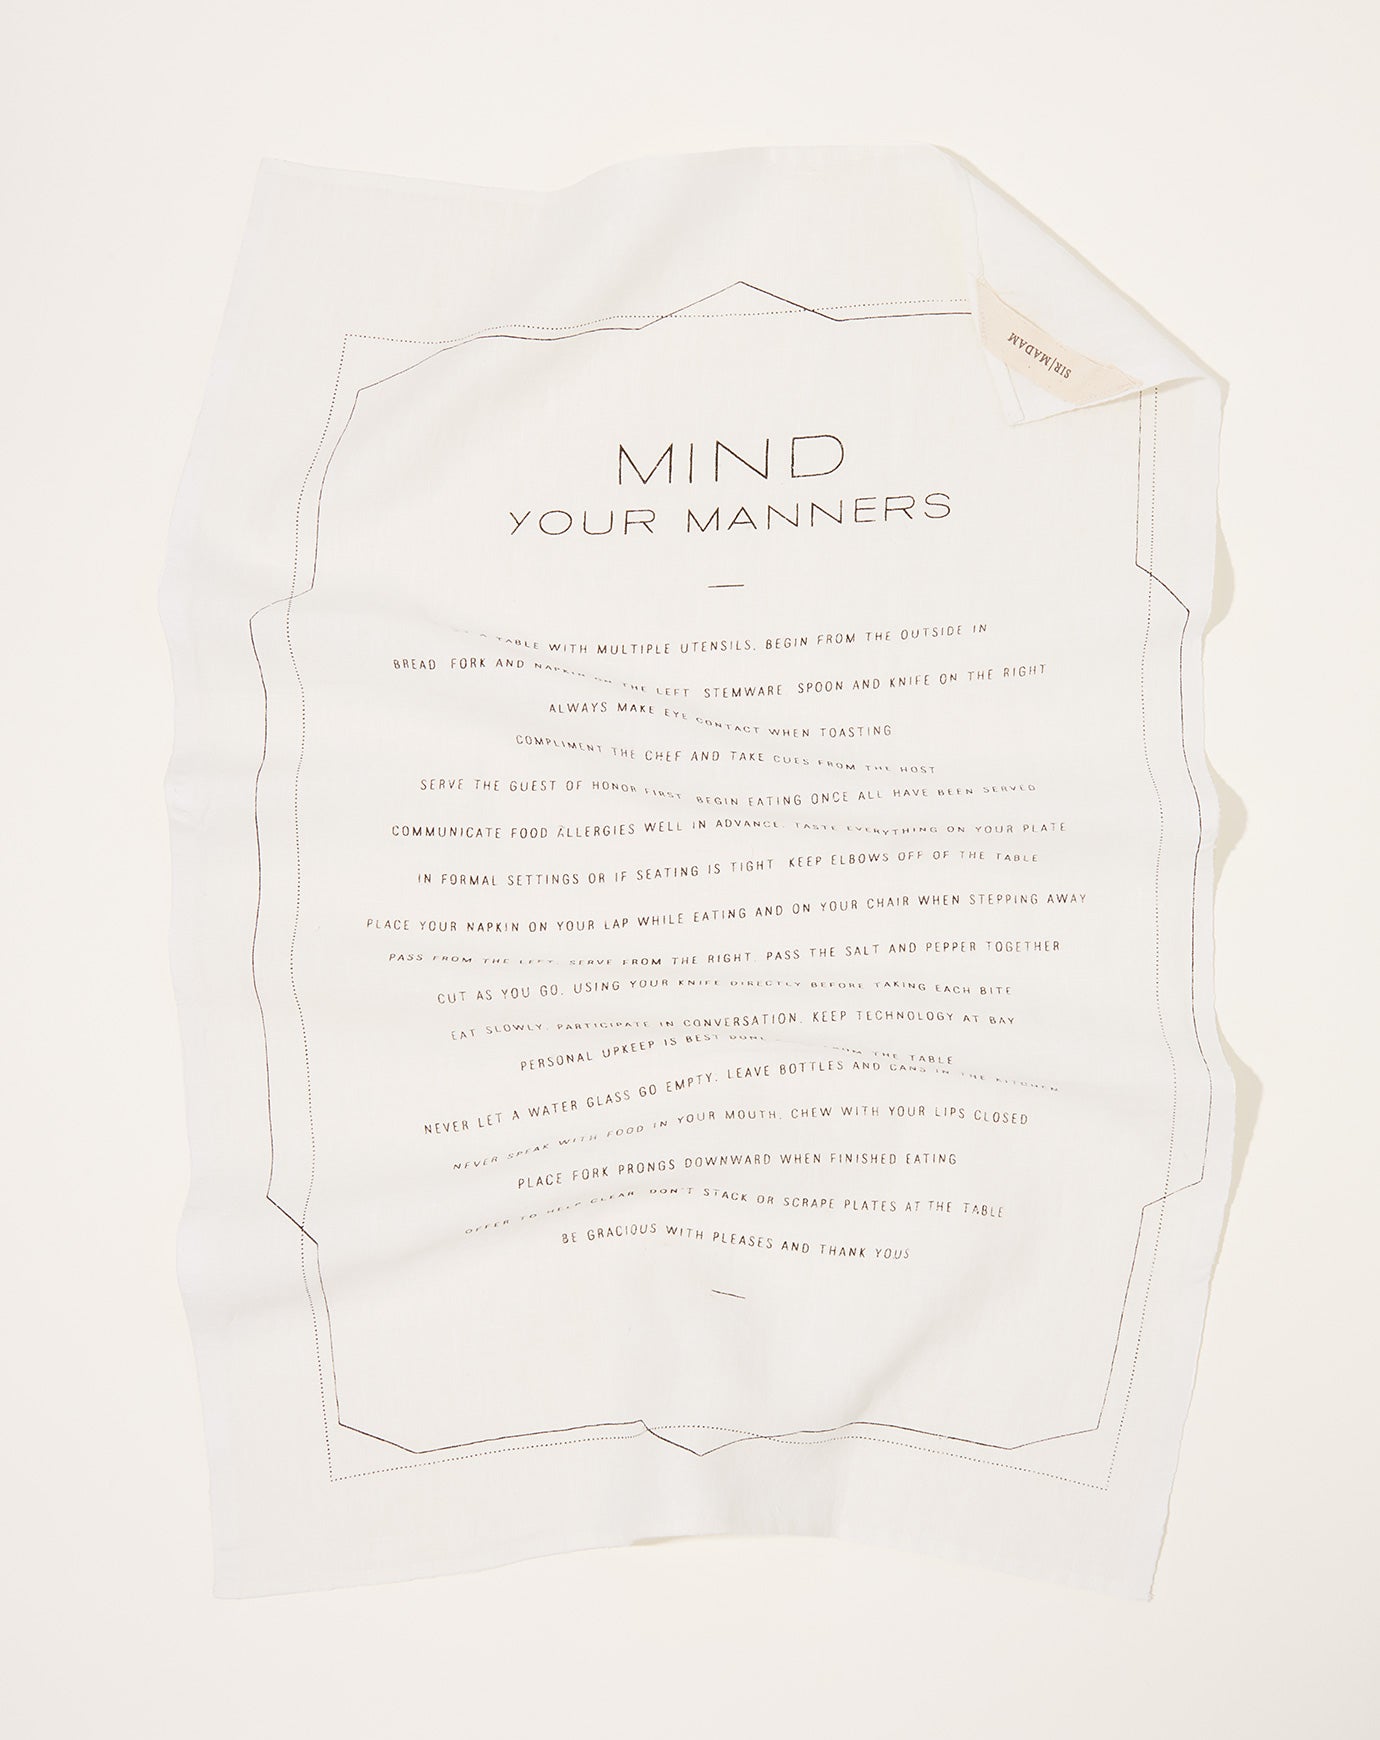 SIR/MADAM
MIND
YOUR MANNERS
A TABLE WITH MULTIPLE UTENSILS, BEGIN FROM THE OUTSIDE IN
BREAD FORK AND NAPKIN ON THE LEFT STEMWARE, SPOON AND KNIFE ON THE RIGHT
ALWAYS MAKE EYE CONTACT WHEN TOASTING
COMPLIMENT THE CHEF AND TAKE CUES FROM THE HOST
SERVE THE GUEST OF HONOR FIRST. BEGIN EATING ONCE ALL HAVE BEEN SERVED
COMMUNICATE FOOD ALLERGIES WELL IN ADVANCE. TASTE EVERYTHING ON YOUR PLATE
IN FORMAL SETTINGS OR IF SEATING IS TIGHT KEEP ELBOWS OFF OF THE TABLE
PLACE YOUR NAPKIN ON YOUR LAP WHILE EATING AND ON YOUR CHAIR WHEN STEPPING AWAY
PASS FROM THE LEFT. SERVE FROM THE RIGHT. PASS THE SALT AND PEPPER TOGETHER
CUT AS YOU GO, USING YOUR KNIFE DIRECTLY BEFORE TAKING EACH BITE
EAT SLOWLY. PARTICIPATE IN CONVERSATION. KEEP TECHNOLOGY AT BAY
PERSONAL UPKEEP IS BEST DONE FROM THE TABLE
NEVER LET A WATER GLASS GO EMPTY. LEAVE BOTTLES AND CANS IN THE KITCHEN
NEVER SPEAK WITH FOOD IN YOUR MOUTH. CHEW WITH YOUR LIPS CLOSED
PLACE FORK PRONGS DOWNWARD WHEN FINISHED EATING
OFFER TO HELP CLEAR. DON'T STACK OR SCRAPE PLATES AT THE TABLE
BE GRACIOUS WITH PLEASES AND THANK YOUS